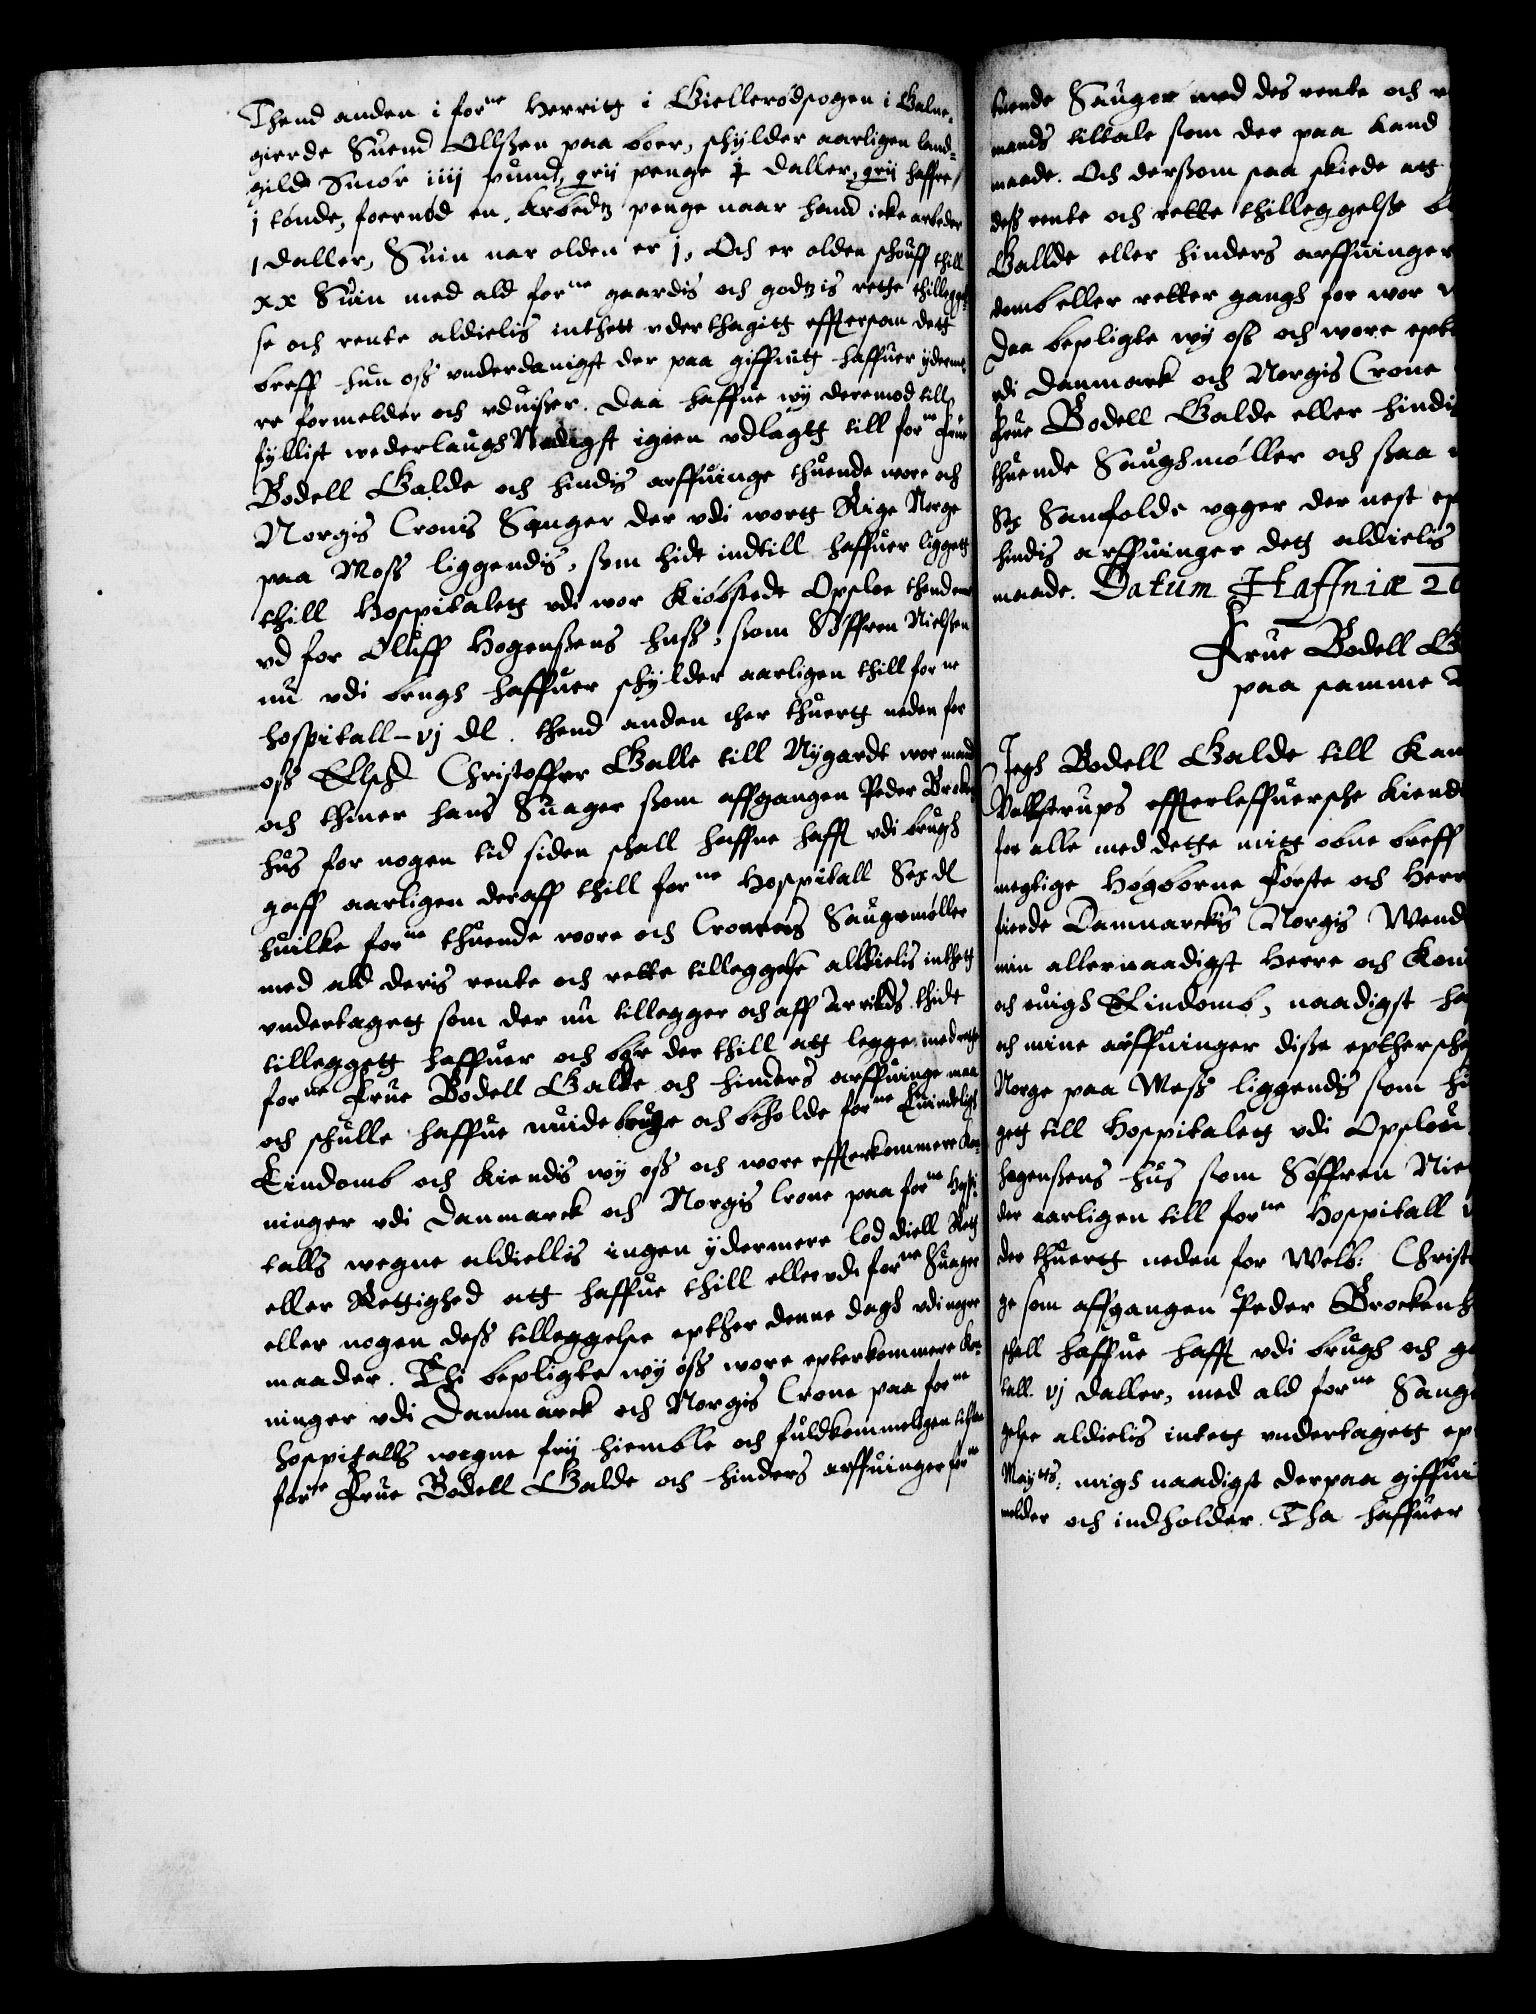 Thend anden i forne Herritz i Giellerødsogen i Galne-
gierde Suend Ollssen paa boer, schylder aarligen land-
gilde Smør iiij pund, grij penge j daller, grij haffre
j tønde, foernød en, Arbedtz penge naar hand icke arbeder
1 daller, Suin nar olden er j, Och er olden schouff thill
xx Suin med ald forne gaardis och godtzis rette thillegel-
se och rente aldielis inthett vderthagitt effttersom dett
breff hun oss vnderdanigst der paa giffuitt haffuer yderme-
re formelder och vduisser. Daa haffue wy deremod till
fyllist wederlaugh Nadigst igien vdlagtt till forne Frue
Bodell Galde och hindis arffuinge thuende wore och
Norgis Cronis Sauger der vdi wortt Rige Norge
paa Moss liggendis, som hidt indtill haffuer liggett
thill Hospitalett vdi wor Kiøbstede Opsloe thend ene
vd for Oluff Hogenssens huss, som Søffren Nielssen
nu vdi brugh haffuer schylder aarligen thill forne
hospitall - vj dl. thend anden eher thuertt neden for
oss Elsch Christoffer Galle till Nygardt wor mand
och thiner hans Suager som affgangen Peder Brocken-
hus for nogen tid siden schall haffue hafft vdi brugh
gaff aarligen deraff thill forne Hospitall Sex dl
huilke forne thuende wore och Cronens Saugemøller
med ald deris rente och rette tilleggelse alldielis inthett
vndertagett som der nu tillegger och aff Arrilds thide
tilleggett haffuer och bør der thill att legge med rette
forne Frue Bodell Galde och hinders arffuinge maa
och schulle haffue nuide bruge och beholde forne Euindeligh
Eindomb och kiendis wy oss och wore effterkommere Kon-
ninger vdi Danmarck och Norgis Crone paa forne Hospi-
talls wegne aldiellis ingen ydermere lod diell Rett
eller Rettighed att haffue thill eller vdi forne Suager
eller nogen dess tilleggelse epther denne dagh vdi nogre
maader. Thi bepligte wy oss wore epterkommere Kon-
ninger vdi Danmarck och Norgis Crone paa forne
hospitalls wegne frij hiemble och fuldkommeligen tilstaa
forne Frue Bodell Galde och hinders arffuinger forne
tuende Sauger med des rente och
mands tiltale som der paa land
maade. Och derssom saa skiede att
dess rente och rette thilleggelse
Gallde eller hinders arffuinger
domb eller retter gangh for wor
Daa bepligte wy oss och wore epte
vdi Danmark och Norgis Crone
Frue Bodell Galde eller hindis
thuende Saughmøller och ssaa
Sex Samfolde vgger der nest ep
hindis arffuinger dett aldielis
maade. Datum Haffniæ 2
Frue Bodell G
paa samme
Jegh Bodell Galde till Kam
Vallstrups effterleffuersche kiende
for alle med dette mitt obne breff
megtige Høgborne Første och Herr
fierde Danmarckis Norgis Wend
min allernaadigst Herre och Kon
och euigh Eindomb, naadigst ha
och mine arffuinger disse eptherschr
Norge paa Moss liggendis som hi
gett till Hospitalett vdi Opsloe
hogenssens hus som Søffren Nie
der aarligen till forne Hospitall
der thuertt neden for Welb: Christ
ge som affgangen Peder Brockenh
schall haffue hafft vdi brugh och g
tall. vj daller, med ald forne Sauge
gelse aldielis intett vndertagett ep
Maytts: migh naadigst derpaa giffui
melder och indholder. Tha haffuer